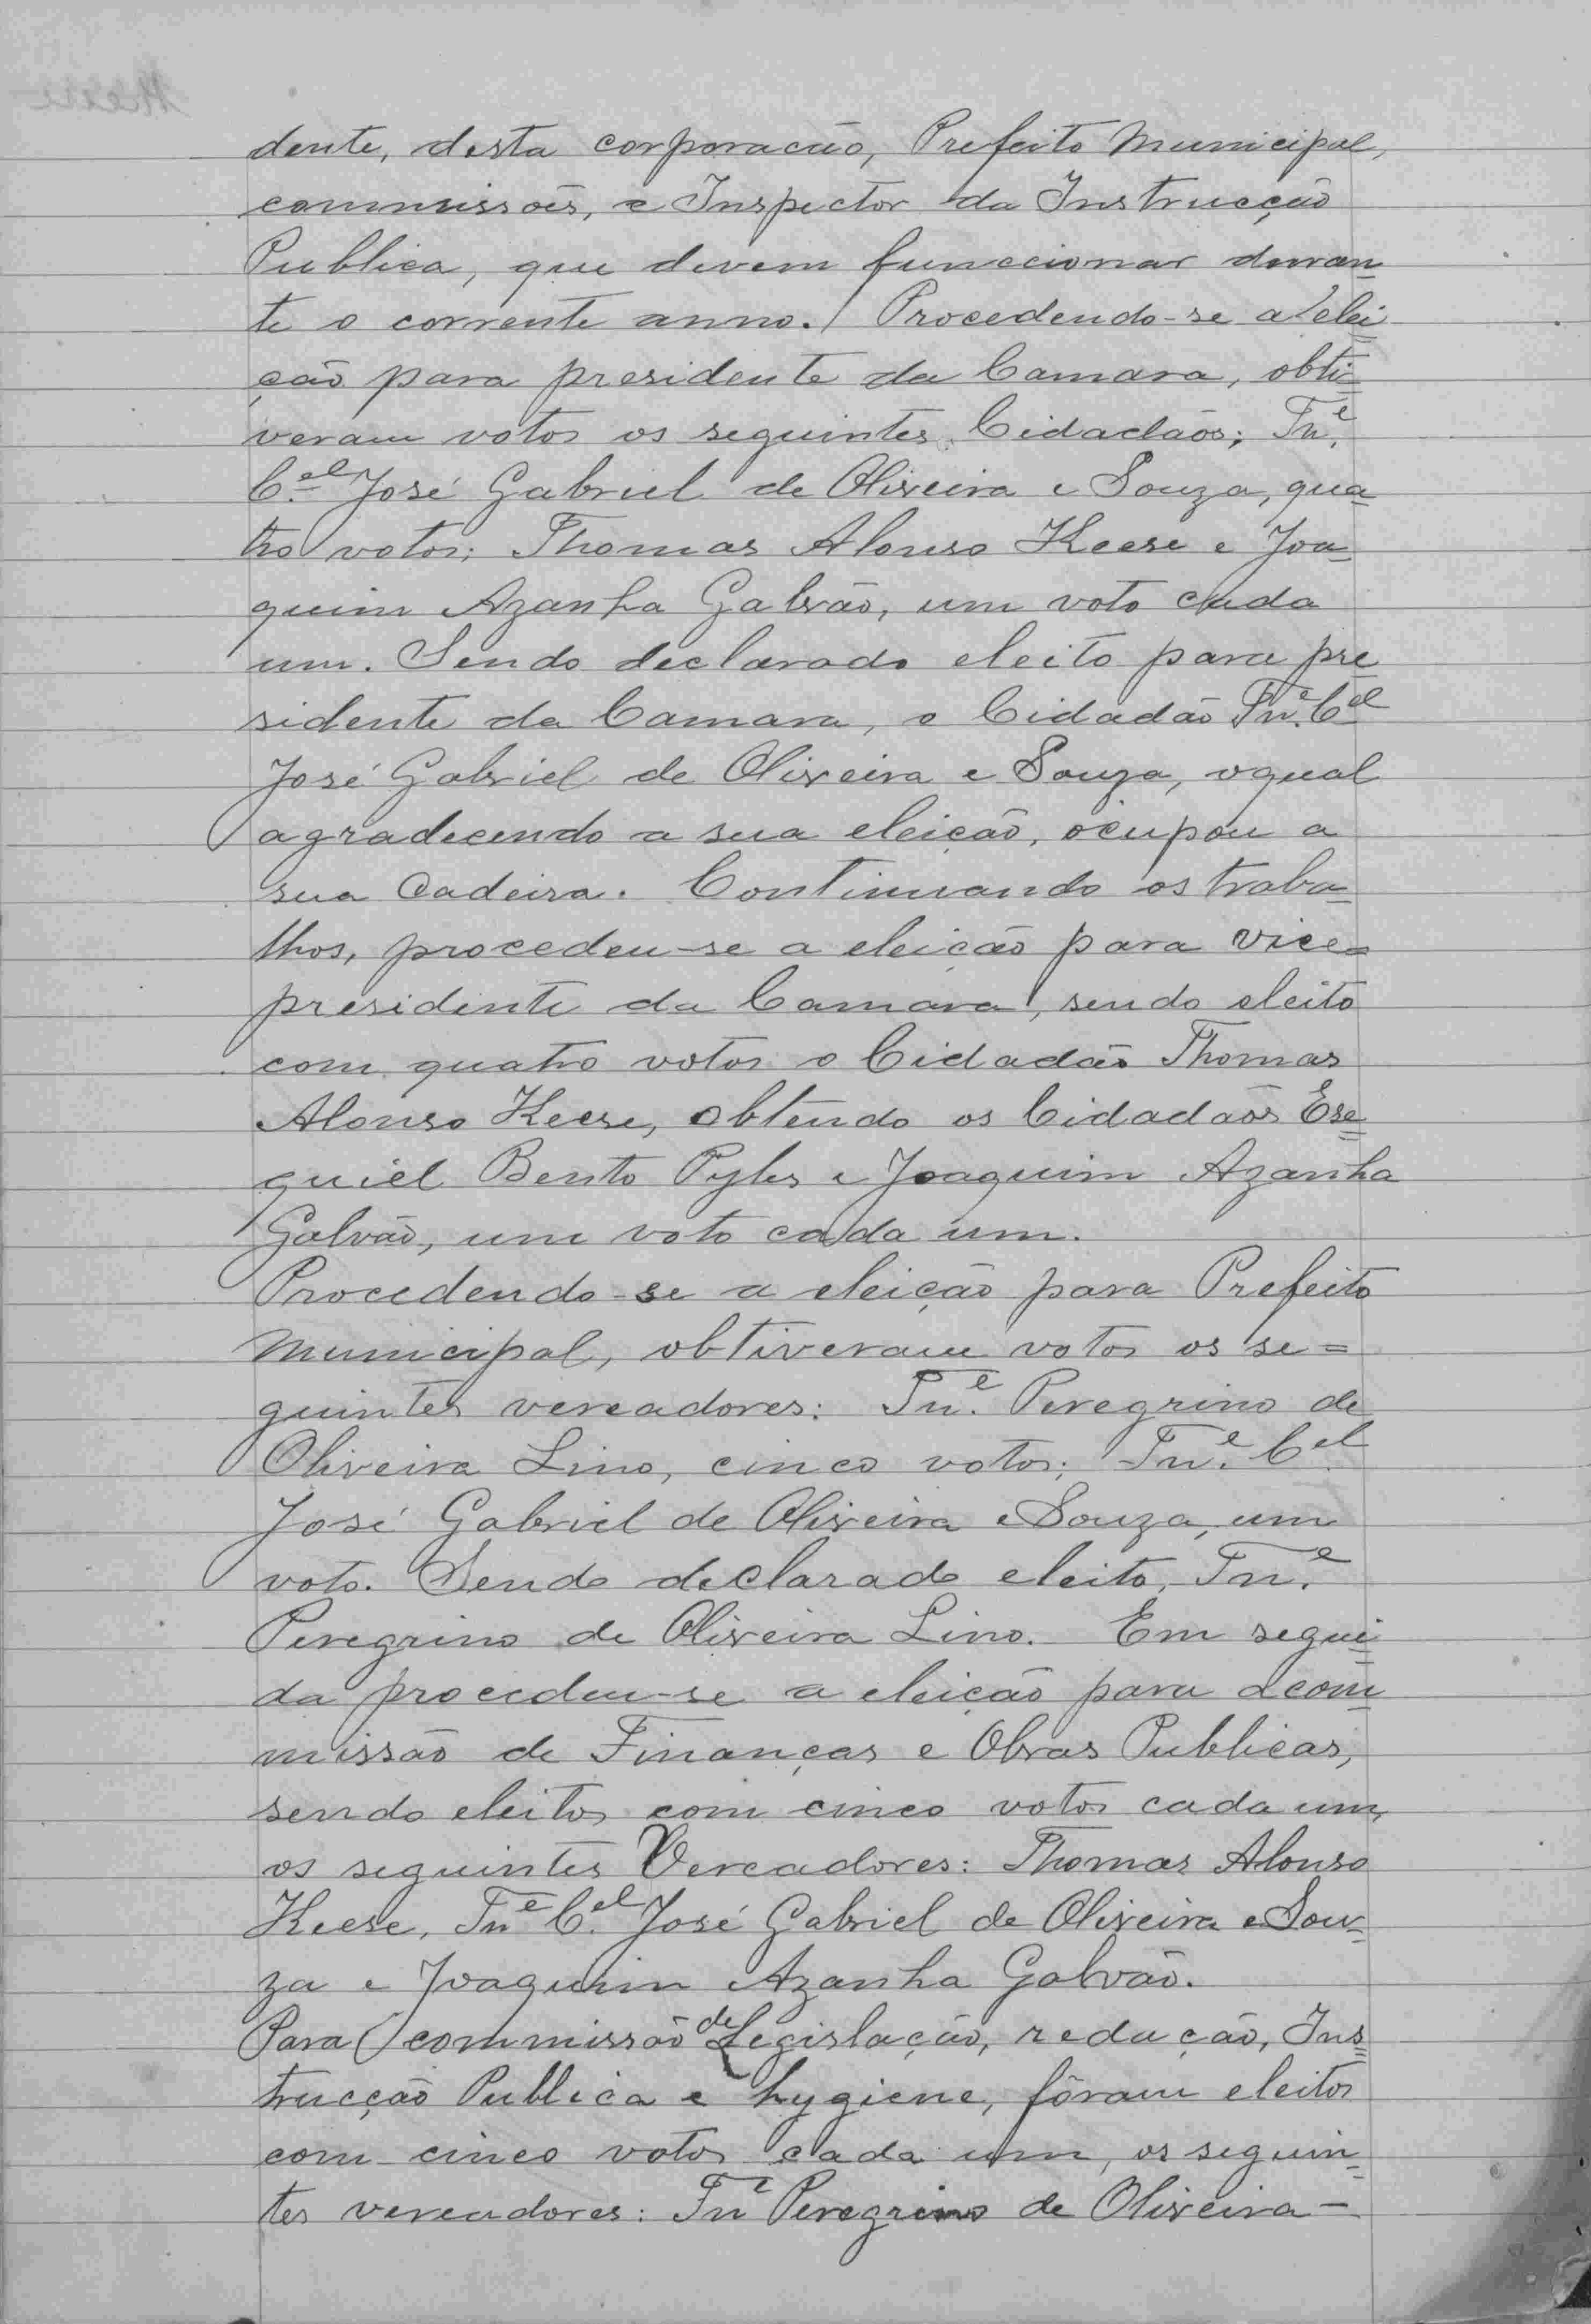 dente, desta corporacão, Prefeito Municipal,
commissões, e Inspector da Instrucção
Publica, que devem funccionar duran
te o corrente anno. Procedendo-se a elei
ção para presidente da Camara, obti
veram votos os seguintes Cidadãos; Tn.e
C.el José Gabriel de Oliveira e Souza, qua
tro votos; Thomas Alonso Keese e Joa
quim Azanha Galvão, um voto cada
um. Sendo declarado eleito para pre
sidente da Camara, o Cidadão Tn.e C.el
José Gabriel de Oliveira e Souza, o qual
agradecendo a sua eleição, ocupou a
sua Cadeira. Continuando os traba
lhos, procedeu-se a eleição para vice=
presidente da Camara, sendo eleito
com quatro votos o Cidadão Thomas
Alonso Keese, obtendo os Cidadãos Ese
quiel Bento Pyles e Joaquim Azanha
Galvão, um voto cada um.
Procedendo-se a eleição para Prefeito
Municipal, obtiveram votos os se=
guintes vereadores: Tn.e Peregrino de
Oliveira Lino, cinco votos; Tn.e C.el
José Gabriel de Oliveira e Souza, um
voto. Sendo declarado eleito, Tn.e
Peregrino de Oliveira Lino. Em segui
da procedeu-se a eleição para a com
missão de Finanças e Obras Publicas,
sendo eleitos com cinco votos cada um,
os seguintes Vereadores: Thomas Alonso
Keese, Tn.e C.el José Gabriel de Oliveira e Sou
za e Joaquim Azanha Galvão.
Para commissão de Legislação, redação, Ins
trucção Publica e hygiene, fôram eleitos
com cinco votos cada um, os seguin
tes vereadores: Tn.e Peregrino de Oliveira-